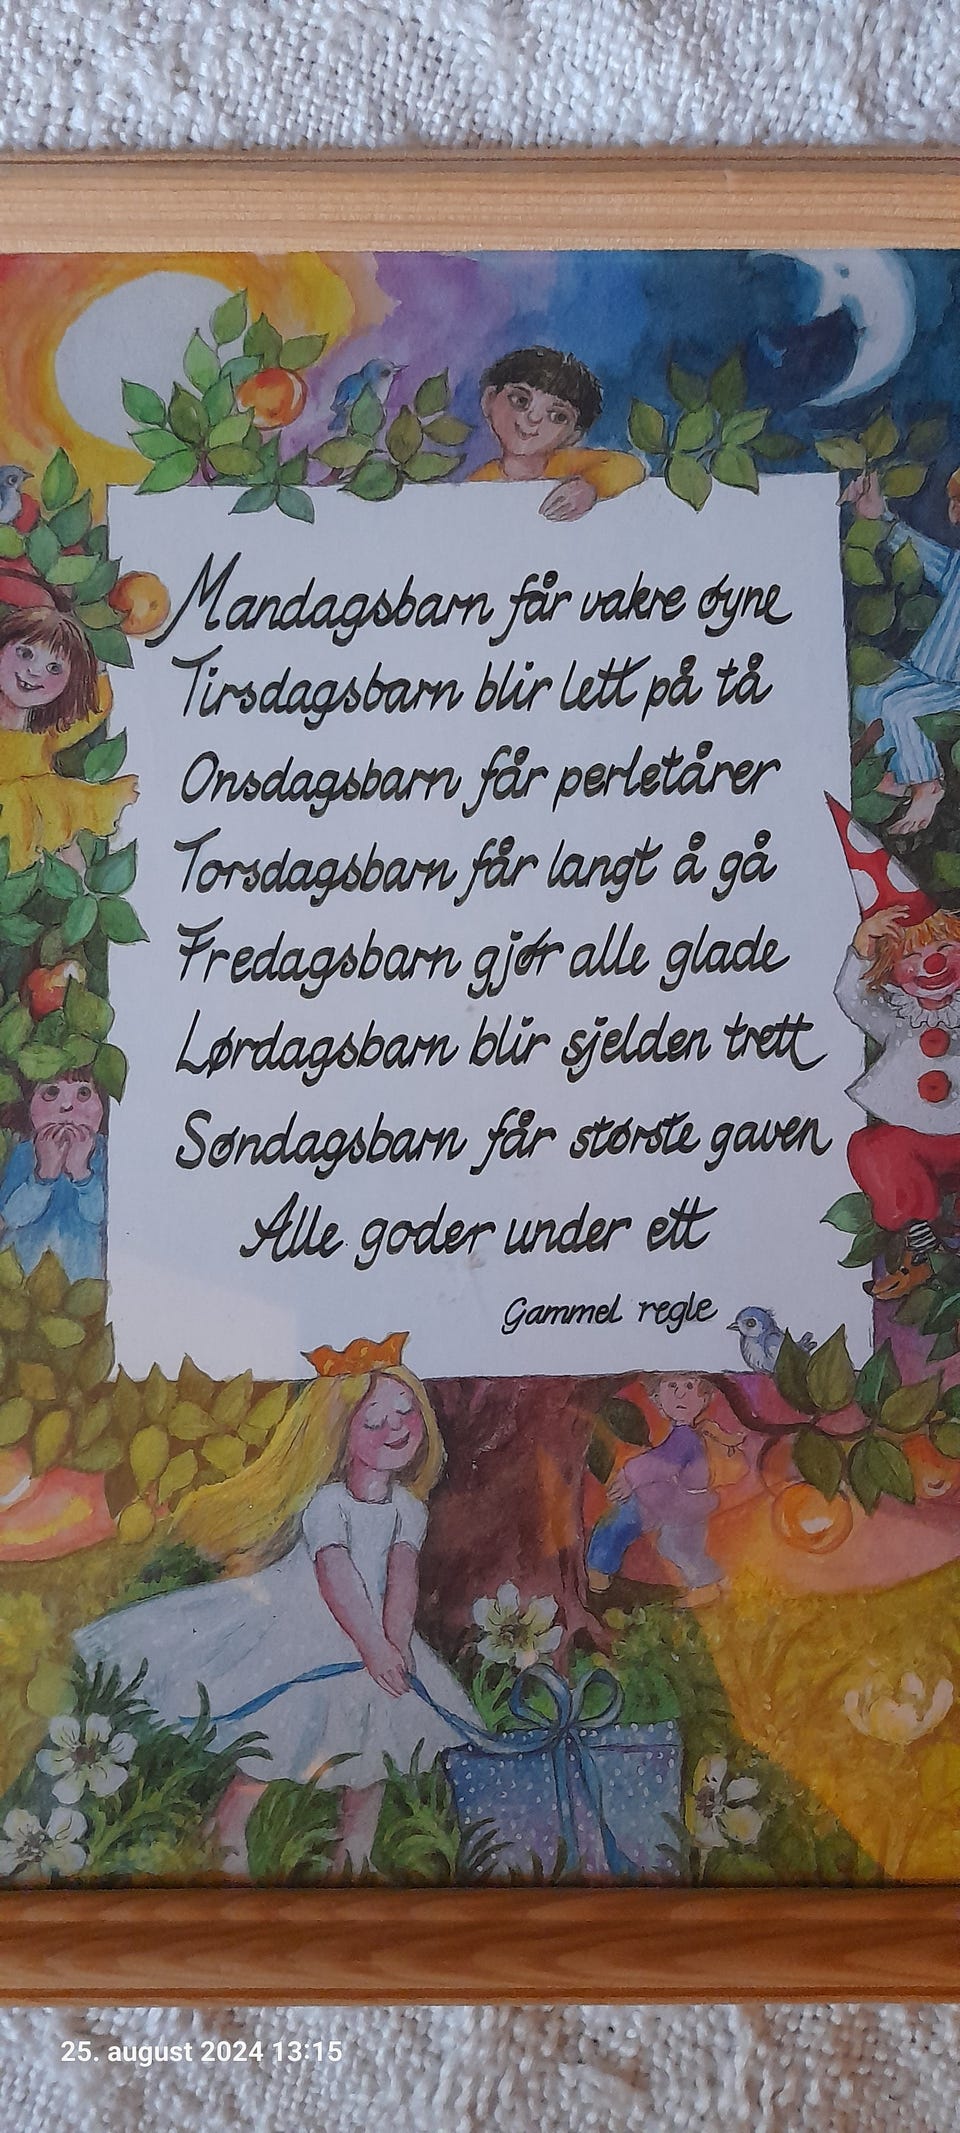 Mandagsbarn får vakre øyne
Tirsdagsbarn blir lett på tå
Onsdagsbarn får perletårer
Torsdagsbarn får langt å gå
Fredagsbarn gjør alle glade
Lørdagsbarn blir sjelden trett
Søndagsbarn får største gaven
Alle goder under ett
Gammel regle
25. august 2024 13:15